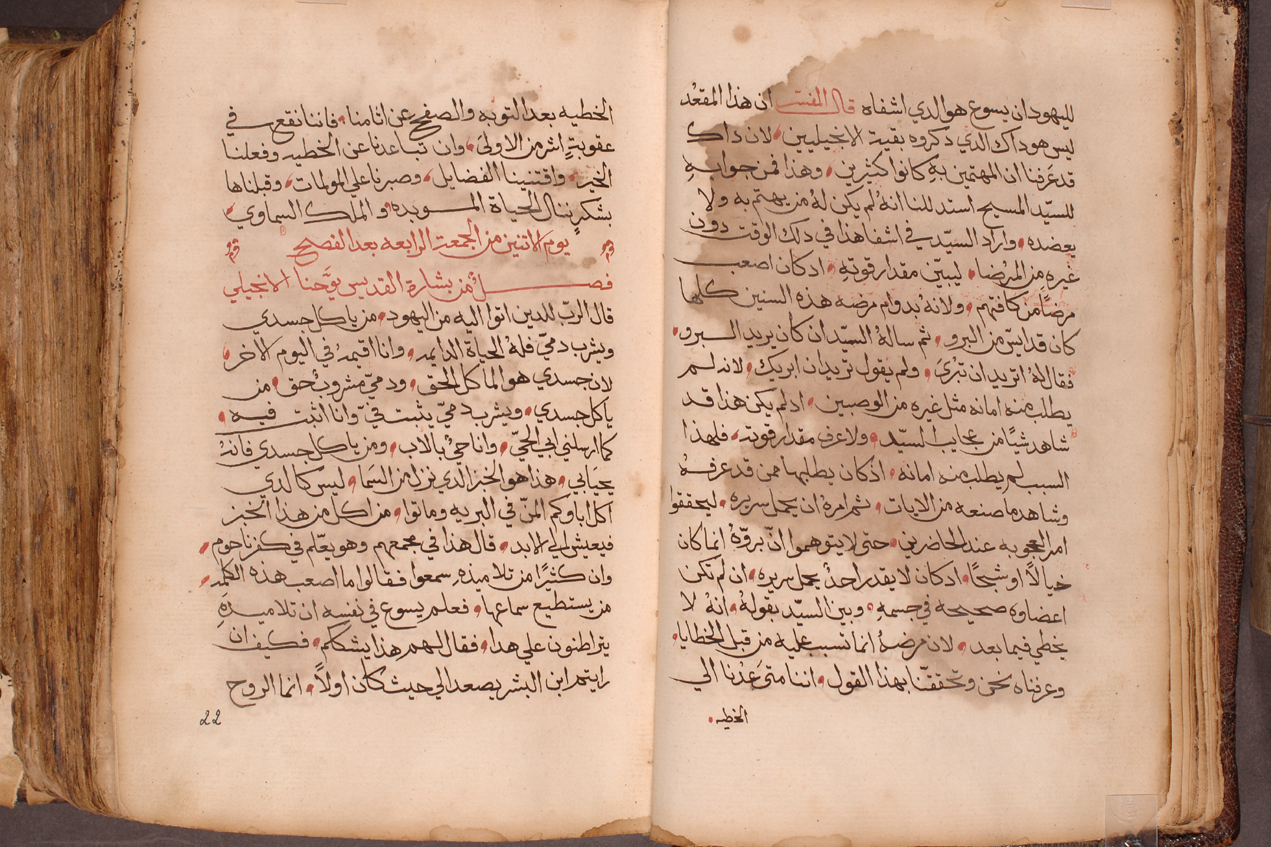 لليهود ان يسوع هو الدي اشفاه قال المفسر ان هذا المقعد
ليس هو داك الدي دكروه بقية الانجيليين لان داك
قد عرفنا ان المهتمين به كانوا كثيرين وهذا فمن جوابه
للسيد المسيح استدللنا انه لم يكن له من يهتم به ولا
يعضده واراد السيد في اشفا هذا في دلك الوقت دون
غيره من المرضا ليبين مقدار قوته ادكان اصعب
مرضا من كافتهم ولانه بدوام مرضه هذه السنين كلها
كان قد ايس من البرو ثم ساله السيد ان كان يريد البرو
فقال له اتريد ان تبرى ولم يقول تريد ان ابريك لانه لم
يطلب منه امانه مثل غيره من الوصبين اد لم يكن هذا قد
شاهد شيا من عجايب السيد ولا عرف مقدار قوته فلهذا
السبب لم يطلب منه امانه اذ كان يطلبها ممن قد عرفه
وشاهد ما صنعه من الايات ثم امره ان يحمل سريره ليحققوا
امر العجوبه عند الحاضرين حتى لا يتوهموا ان بروه انما كان
خيالا او شبحا ادكان لا يقدر احد يحمل سريره ان لم تكن
اعضاوه صحيحه في جسمه وبين السيد بقوله انه لا
يخطي فيما بعد لان مرضه انما تسبب عليه من قبل الخطايا
وعرفناه نحن وتحققنا بهذا القول اننا متى عدنا الي
الخطيه
الخطيه بعد التوبه والصفح عن اثامنا فاننا نقع في
عقوبة اشر من الاولى وان تباعدنا عن الخطيه وفعلنا
الخير واقتنينا الفضايل وصبرنا على المولمات وقبلناها
بشكر ننال الحياة الموبده والملك السماوي
يوم الاتنين من الجمعة الرابعه بعد الفصح
فصل من بشارة القديس يوحنا الانجيلي
قال الرب للدين اتوا اليه من اليهود من ياكل جسدي
ويشرب دمي فله الحياة الدايمه وانا اقيمه في اليوم الاخر
لان جسدي هو الماكل الحق ودمي مشروب حق من
ياكل جسدي ويشرب دمي يثبت في وانا اثبت فيه
كما ارسلني ابي الحي وانا حي بالاب ومن ياكل جسدي فانه
يحيا بي هذا هو الخبز الدي نزل من السما ليس كالدي
اكل اباوكم المن في البريه وماتوا من اكل من هذا الخبز
فيعيش الي الابد قال هذا في مجمعهم وهو يعلم في كفرناحوم
وان كثيرا من تلاميذه سمعوا فقالوا ما اصعب هذه الكلمه
من يستطيع سماعها فعلم يسوع في نفسه ان تلاميده
يتراطنون علي هدا فقال لهم هذا يشككم فكيف ان
رايتم ابن البشر يصعد الي حيث كان اولا انما الروح
22